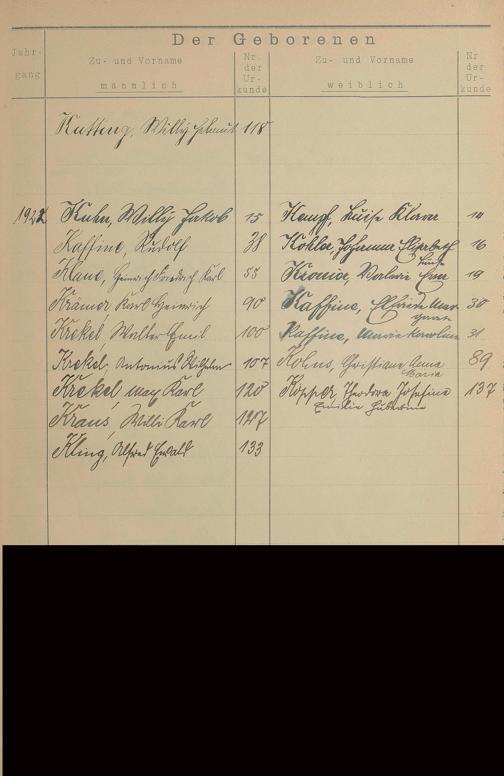 Der Geborenen
Jahrgang
Zu- und Vorname
männlich
Nr. der Urkunde
Zu- und Vorname
weiblich
Nr. der Urkunde
Kutting, Willy Helmut 118
1922 Kuhn, Willy Jakob 15
Kempf, Luise Klara 14
Kaffine, Rudolf 38
Kohler, Johanna Elisabeth 16
Klaue, Heinrich Friedrich Karl 55
Luise
19
Krämer Karl Heinrich 90
Kaffine, 30
Krekel Walter Emil 100
Kaffine, Maria Karoline 31
Krekel, Antonius Wilhelm 107
Kohns, Christiane Anna 89
Maria
Krekel Max Karl 120
Köppler Theodora Josefine 137
Emilie Hubertine
Kraus Willi Karl 127
Kling, Alfred Ewald 133